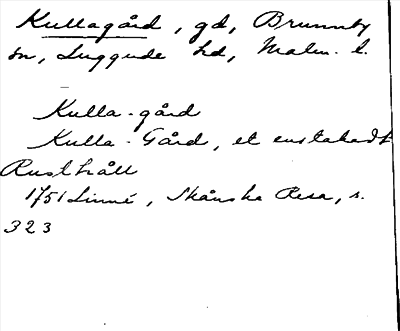 Kullagård, gd, Brunnby
sn, Luggude hd, Malm. l.
Kulla-gård
Kulla-Gård, et enstakadt
Rusthåll
1751 Linné, Skånska Resa, s.
323